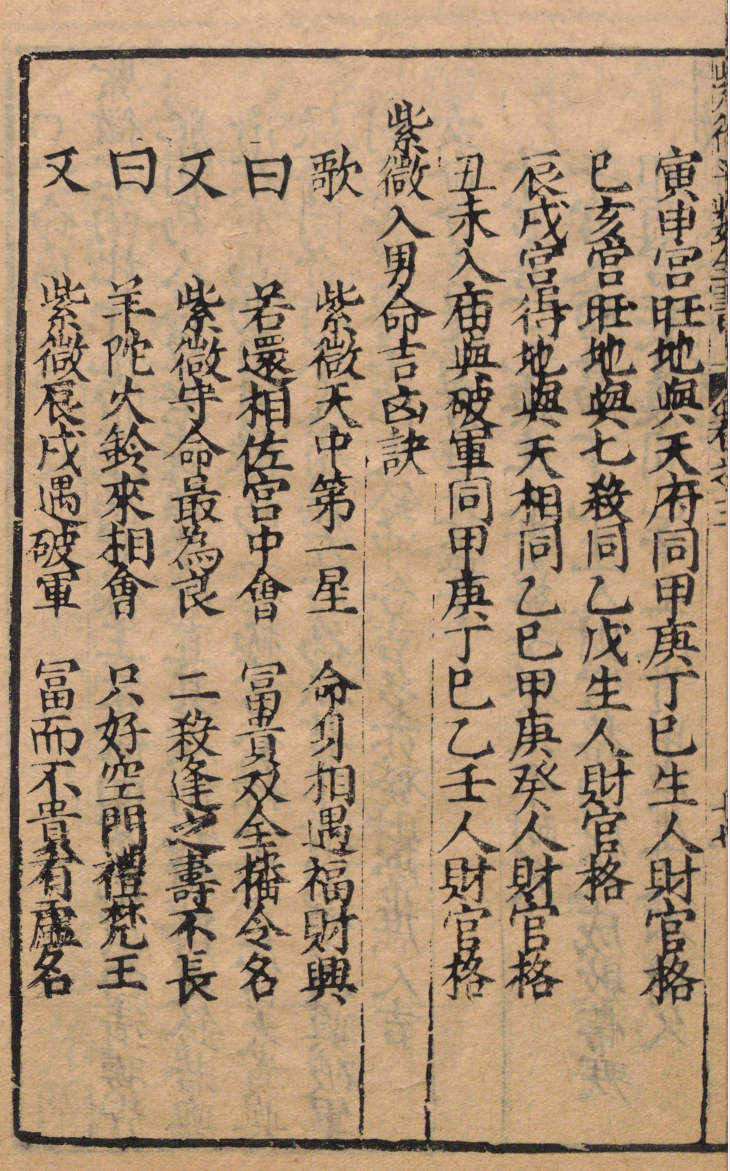 寅申宮旺地與天府同甲庚丁巳生人財官格
巳亥宮旺地與七殺同乙戊生人財官格
辰戌宮得地與天相同乙巳甲庚癸人財官格
丑未入庙與破軍同甲庚丁巳乙壬人財官格
紫微入男命吉凶訣
歌 紫微天中第一星 命身相遇福財興
曰 若還相佐宮中會 冨貴双全播令名
又 紫微守命最為良 二殺逢之壽不長
曰 羊陀火鈴來相會 只好空門禮梵王
又 紫微辰戌遇破軍 冨而不貴有虛名